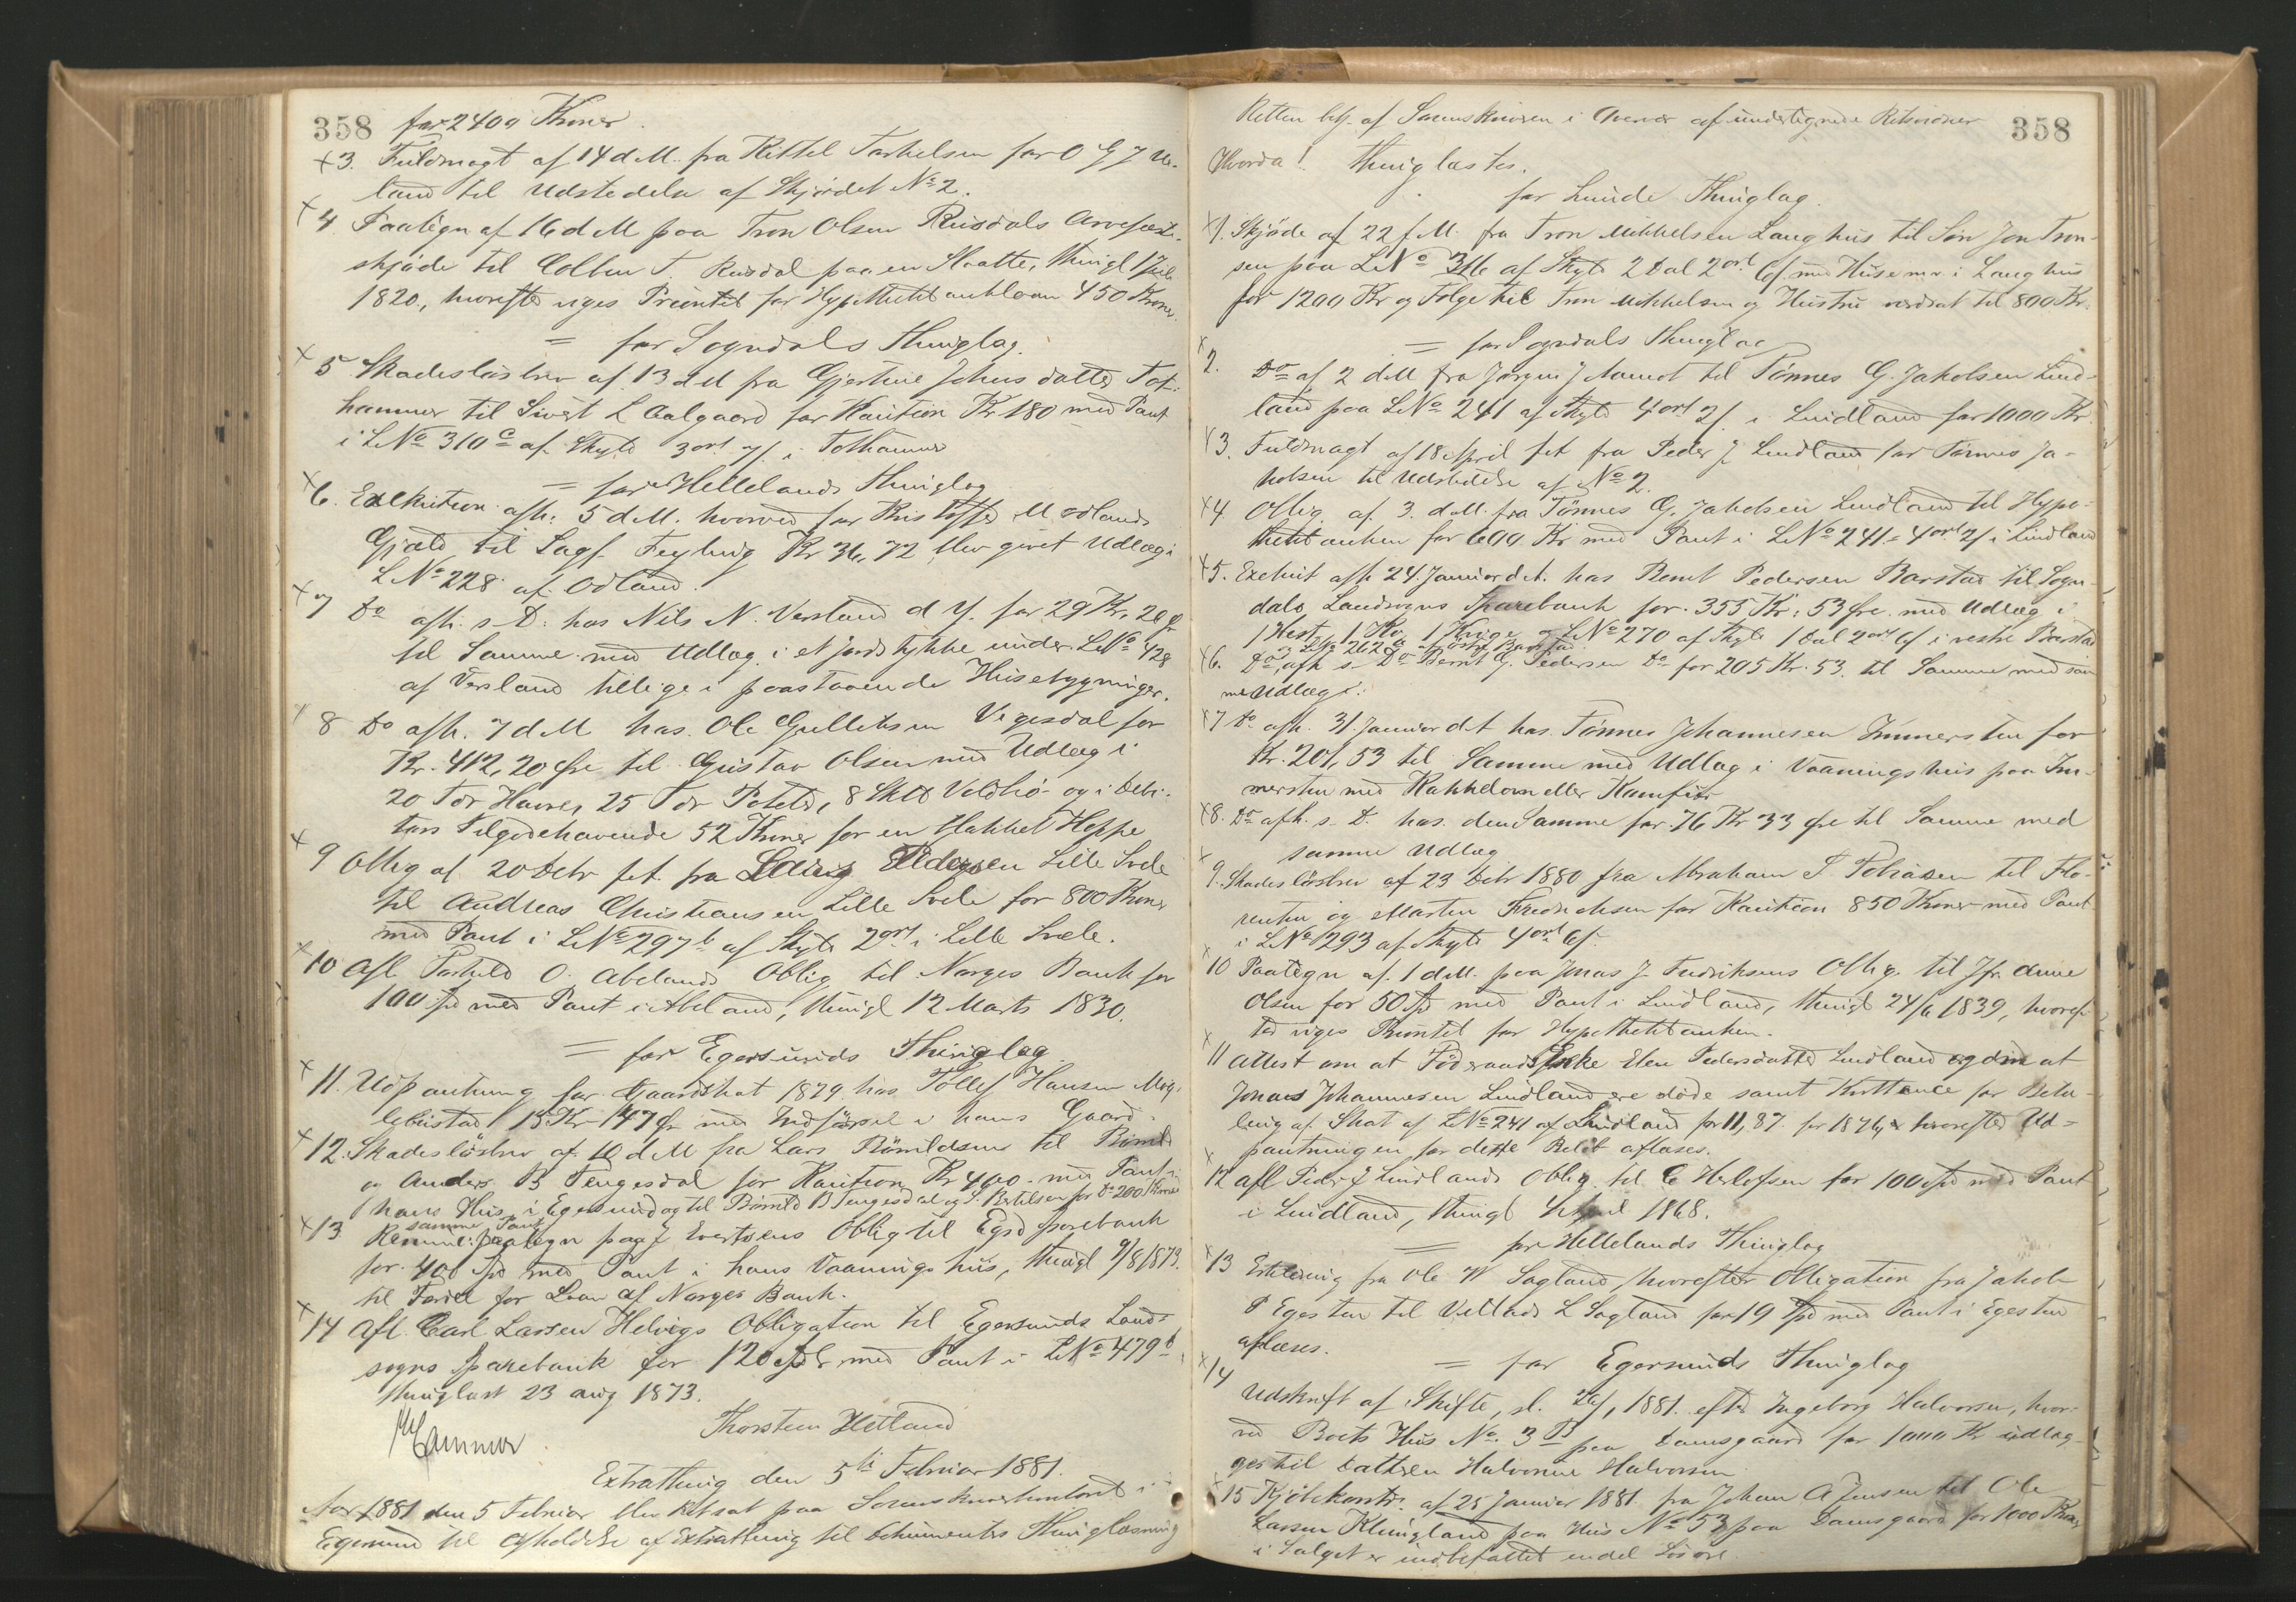 358 for 2400 Kroner.
+3. Fuldmagt af 14 d M. fra Kittel Torkelsen for O G J Ue-
land til Udstedelse af Skjödet No 2.
+4 Paategn af 16 d M paa Tron Olsen Ruisdals Arvefæste-
skjöde til Colben T. Rusdal paa en Slaatte, thingl 1 Juli
1820, hvorefter viges Prioritet for Hypothekbanklaan 450 Kroner.
= for Sogndals Thinglag.
+ 5 Skadeslösbrev af 13 d M fra Gjertine Johns datter Tot-
hammer til Sivert L Aalgaard for Kaution Kr 180 med Pant
i LNo 310 c af Skyld 3 ort 7 s. i Tothammer
= for Hellelands Thinglag
+6. Exekution afh: 5 d M. hvorved for Kristoffer M Odlands
Gjæld til Sagf. Feyling Kr 36,72 blev givet Udlæg i
LNo 228 af Odland.
+7 Do afh. s. D. hos Nils N. Versland d y. for 29 Kr. 20 Ør
til Samme med Udlæg i et jordstykke under LNo 428
af Versland tillige i paastaaende Husebygninger.
+ 8 Do afh. 7 d M hos Ole Gulleksen Vigesdal for
Kr. 412,20 Øre til Gustav Olsen med Udlæg i
20 Tdr Havre, 25 Tdr Poteter, 8 Skld Voldhö og i Debi-
tors Tilgodehavende 52 Kroner for en Hakkel Hoppe
+ 9 Oblig af 20 Decbr f.A. fra Pedersen Lille Svele
til Andreas Christiansen Lille Svele for 800 Kroner
med Pant i LNo 297 b af Skyld 2 ort i Lille Svele.
+10 Afl Torkild O. Abelands Oblig til Norges Bank for
100 Spd med Pant i Abeland, thingl 12 Marts 1830.
= for Egersunds Thinglag.
+11. Udpantning for Gaardskat 1879 hos Tollef Hansen Mög-
lebustad 15 Kr 147 Ør med Indförsel i hans Gaard.
+12. Skadeslösbrev af 10 d M fra Lars Römildsen til Römild
og Anders B Tengesdal for Kaution Kr 400 med Pant i
hans Hus i Egersund og til Römild B Tengesdal og S. Bertelsen for Do 200 Kroner
samme Pant
+13. paategn paa J Evertsens Oblig til Egsd Sparebank
for 400 Spd med Pant i hans Vaaningshus, thingl 9/8 1873.
til Fordel for Laan af Norges Bank.
+14 Afl. Carl Larsen Helvigs Obligation til Egersunds Land-
sogns Sparebank for 120 Spd med Pant i LNo 479 b,
thinglæst 23 aug 1873.
Thorsten Hetland
Extrathing den 5te Februar 1881.
Aar 1881 den 5 Februar blev Ret sat paa Sorenskriverkontoret i
Egersund til Afholdelse af Extrathing til Dokumenters Thinglæsning
358
Retten betj. af Sorenskriveren i Overvær af undertegnede Retsvidner
Hvorda! thinglæstes.
for Lunde Thinglag.
+1. Skjöde af 22 f.M. fra Tron Mikkelsen Laughus til Sön Jon Tron-
sen paa LNo 316 af Skyld 2 Dal 2 ort 6 s med Huse m.v. i Laughus
for 1200 Kr og Folge til Tron Mikkelsen og Hustru værdsat til 800 Kr.
= for Sogndals Thinglag
+ 2. Do af 2 d M fra Jörgen J Aamot til Tönnes G. Jakobsen Lind-
land paa LNo 241 af Skyld 4 ort 2 s. i Lindland for 1000 Kr.
+3. Fuldmagt af 18 April f A fra Peder J Lindland for Tönnes Ja-
kobsen til Udstedelse af No 2.
+4 Oblig af 3. d M. fra Tönnes G. Jakobsen Lindland til Hypo-
thekbanken for 600 Kr med Pant i LNo 241 = 4 ort 2 s i Lindland
+5. Exekut afh 24. Januar d A. hos Bernt Pedersen Barstad til Sogn-
dals Landsogns Sparebank for 355 Kr. 53 Øre med Udlæg i
1 Hest, 1 Ko, 1 Kvige og LNo 270 af Skyld 1 Dal 2 ort 6 s i vestre Barstad
og LNo 262 a i östre Barstad.
+6. Do, afh s. Do Bernt G. Pedersen Do for 205 Kr. 53. til Samme med sam
me Udlæg i.
+7 Do afh. 31. Januar d A hos Tönnes Johannesen Immersten for
Kr. 201,53 til Samme med Udlæg i Vaaningshus paa Im-
mersten med Kakkelovn eller Komfur
+8. Do afh. s. D. hos den Samme for 76 Kr 33 Øre til Samme med
samme Udlæg
+ 9. Skadeslösbrev af 23 Decbr 1880 fra Abraham T. Tobiasen til Flo-
rentin og Martin Fredriksen for Kaution 850 Kroner med Pant
i LNo 293 af Skyld 4 ort 6 s.
+ 10 Paategn af 1 d M. paa Jonas J. Fredriksens Oblig. til Jfr. Anne
Olsen for 50 Spd med Pant i Lindland, thingl 24/6 1839, hvoref-
ter viges Prioritet for Hypothekbanken.
+ 11 Attest om at Föderaads Enke Elen Pedersdatter Lindland og om at
Jonas Johannesen Lindland ere döde samt Kvittance for Beta-
ling af Skat af LNo 241 af Lindland for 11,87 for 1876, hvorefter Ud-
pantningen for dette Belöb aflæses.
+ 12 Afl Peder J Lindlands Oblig. til C Herlofsen for 100 Spd med Pant
i Lindland, thingl April 1868.
= for Hellelands Thinglag
+13 Erklæring fra Ole W Sagland, hvorefter Obligation fra Jakob
P Egesten til Vetlads L Sagland for 19 Spd med Pant i Egesten
aflæses.
= for Egersunds Thinglag
+14 Udskrift af Skifte, sl. 26/1 1881. efter Ingeborg Halvorsen, hvor-
ved Boets Hus No. 3 B paa Damsgaard for 1000 Kr udlæg-
ges til Datteren Halvorine Halvorsen
+15 Kjöbekontr. af 25 Januar 1881. fra Johan A Jensen til Ole
Larsen Klungland paa Hus No 53 paa Damsgaard for 1000 Kroner
i Salget er indbefattet endel Lösöre.